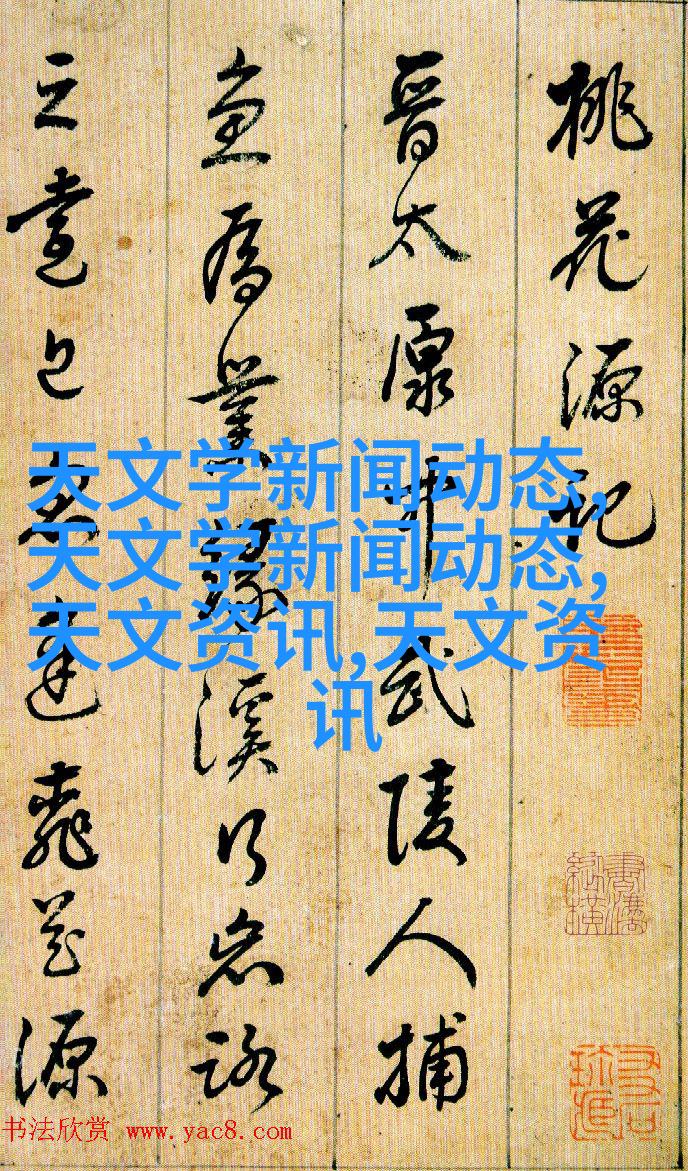 桃花源記
晉太原中武陵人捕
魚為業緣溪行忘路
之遠近忽逢桃花源
天文学新闻动态,
天文学新闻动态,
天文资讯,天文资
讯
书法欣赏 www.yac8.com